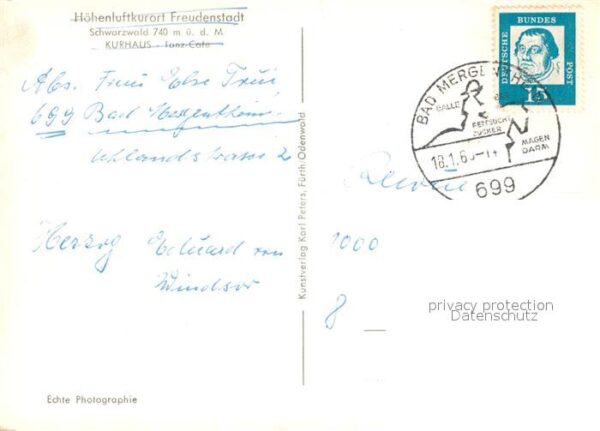 Höhenluftkurort Freudenstadt
Schwarzwald 740 m ü. d. M
KURHAUS - Tanz-Cafe
Abs. Frau Else
699 Bad Mergentheim
Uhlandstrasse 2
Herzog Eduard von
Windsor
Echte Photographie
Kunstverlag Karl Peters, Fürth/Odenwald
DEUTSCHE
BUNDES
POST
15
BAD MERGENTHEIM
GALLE
FETTSUCHT
ZUCKER
MAGEN
DARM
18.1.6
699
1000
8
privacy protection
Datenschutz